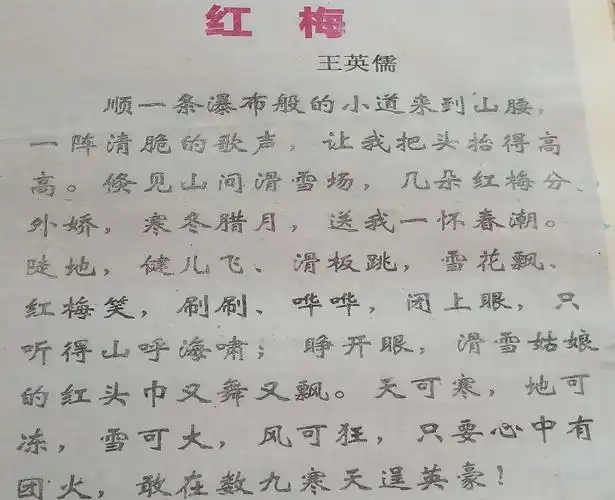 红 梅
王英儒
顺一条瀑布般的小道来到山腰，
一阵清脆的歌声，让我把头抬得高
高。倏见山间滑雪场，几朵红梅分
外娇，寒冬腊月，送我一怀春潮。
陡地，健儿飞、滑板跳，雪花飘、
红梅笑，刷刷、哗哗，闭上眼，只
听得山呼海啸；睁开眼，滑雪姑娘
的红头巾又舞又飘。天可寒，地可
冻，雪可大，风可狂，只要心中有
团火，敢在数九寒天逞英豪！